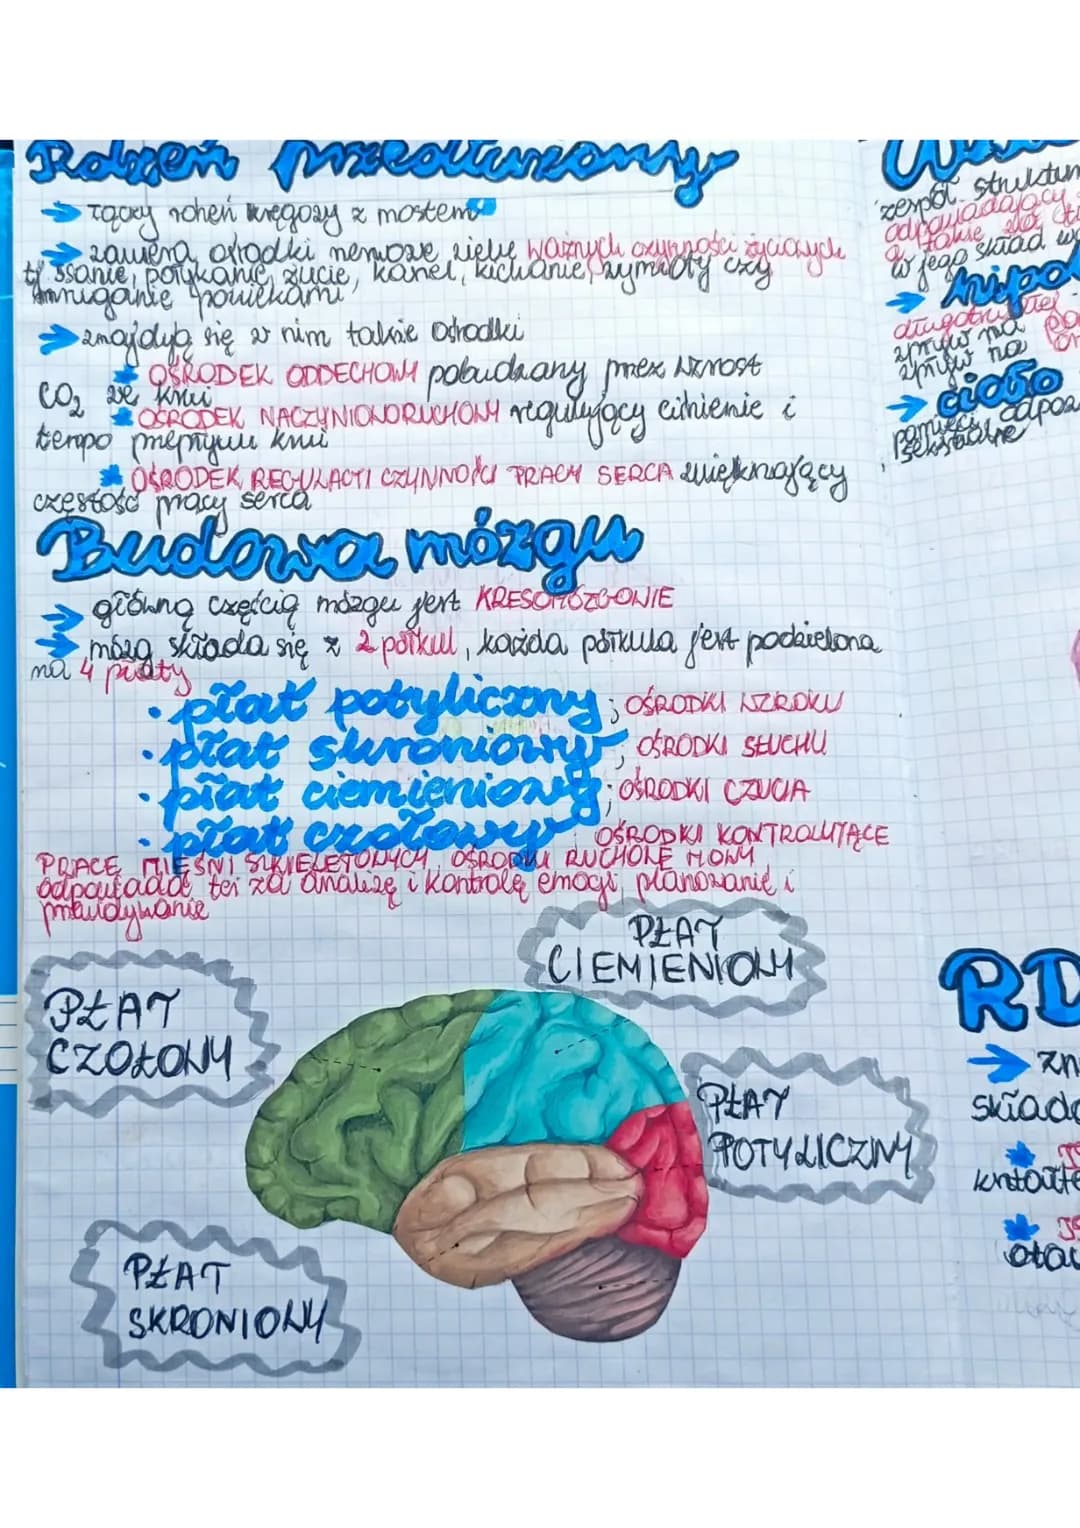 Rdzeń przedłużony
→ łączy rdzeń kręgosy z mostem
→ zawiera ośrodki nerwowe wielu ważnych czynności życiowych
tj ssanie, połykanie, żucie, kaszel, kichanie, wymioty czy
mruganie powiekami
→ znajdują się w nim także ośrodki
OŚRODEK ODDECHOWY pobudzany przez wzrost
CO₂ we krwi
OŚRODEK NACZYNIORUCHOWY regulujący ciśnienie i
tempo przepływu krwi
OŚRODEK REGULACJI CZYNNOŚCI PRACY SERCA zwiększający
częstość pracy serca
Budowa mózgu
→ główną częścią mózgu jest KRESOMÓZGOWIE
→ mózg składa się z 2 półkul, każda półkula jest podzielona
na 4 płaty
• płat potyliczny; OŚRODKI WZROKU
• płat skroniowy; OŚRODKI SŁUCHU
• płat ciemieniowy; OŚRODKI CZUCIA
• płat czołowy OŚRODKI KONTROLUJĄCE
PRACĘ MIĘŚNI SZKIELETOWYCH, OŚRODKI RUCHOWE MOWY
odpowiada też za analizę i kontrolę emocji, planowanie i
przewidywanie
PŁAT
CIEMIENIOWY
PŁAT
CZOŁOWY
PŁAT
POTYLICZNY
PŁAT
SKRONIOWY
zespół
odpowiadający
w jego skład
→
→ ciało
pamięć
seksualne
RD
→ zn
składa